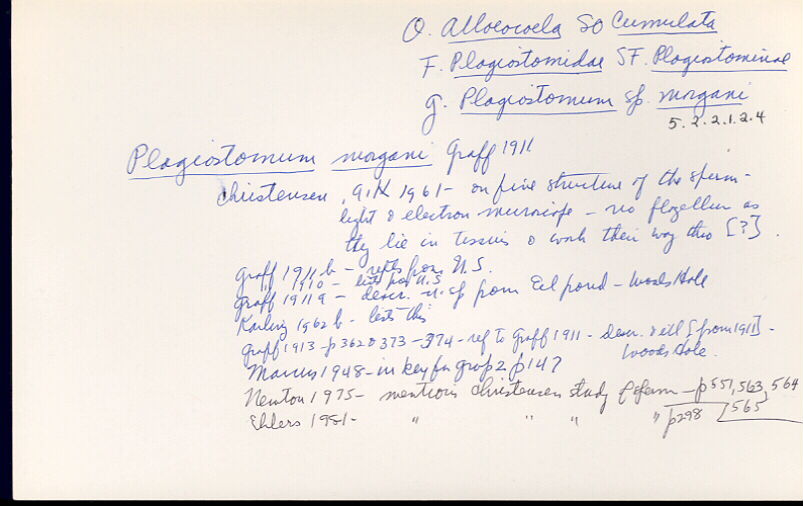 O. Alloeocoela SO Cumulata
F. Plagiostomidae SF. Plagiostominae
g. Plagiostomum sp. morgani
5.2.2.1.2.4
Plagiostomum morgani Graff 1911
Christensen, 1961 - on fine structure of the sperm -
light & electron microscope - no flagellum as
they lie in tissues & work their way thro [?].
Graff 1911b - repts from U.S.
" 1910 - lists for U.S
Graff 1911a - descr. n.sp from Eel pond - Woods Hole
Karling 1962b - lists this
Graff 1913 - p362 & 373-374 - ref to Graff 1911 - descr. & [from 1911] -
Woods Hole.
Marcus 1948 - in key for group 2 p147
Newton 1975 - mentions Christensen study of sperm - p551, 563, 564
565
Ehlers 1981 - " " " " p298